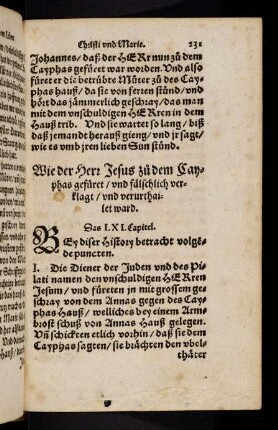 Christi vnd Marie. 231
Johannes / daß der HERR nun zů dem
Cayphas gefüret war worden. Vnd also
füret er die betrübte Můter zů des Cay-
phas hauß / da sie von feren stůnd / vnd
hört das jämmerlich geschray / das man
mit dem vnschuldigen HERren in dem
Hauß trib. Vnd sie wartet so lang / biß
daß jemandt herauß gieng / vnd jr sagt /
wie es vmb jren lieben Sun stůnd.
Wie der Herr Jesus zů dem Cay-
phas gefüret / vnd fälschlich ver-
klagt / vnd verurthai-
let ward.
Das LXI. Capitel.
BEy diser History betracht volge-
de puncten.
I. Die Diener der Juden vnd des Pi-
lati namen den vnschuldigen HERren
Jesum / vnd füreten jn mit grossem ge-
schray von dem Annas gegen des Cay-
phas Hauß / welliches bey einem Arm-
brost schuß von Annas Hauß gelegen.
Vñ schickten etlich vorhin / daß sie dem
Cayphas sagten / sie brächten den vbel-
thäter